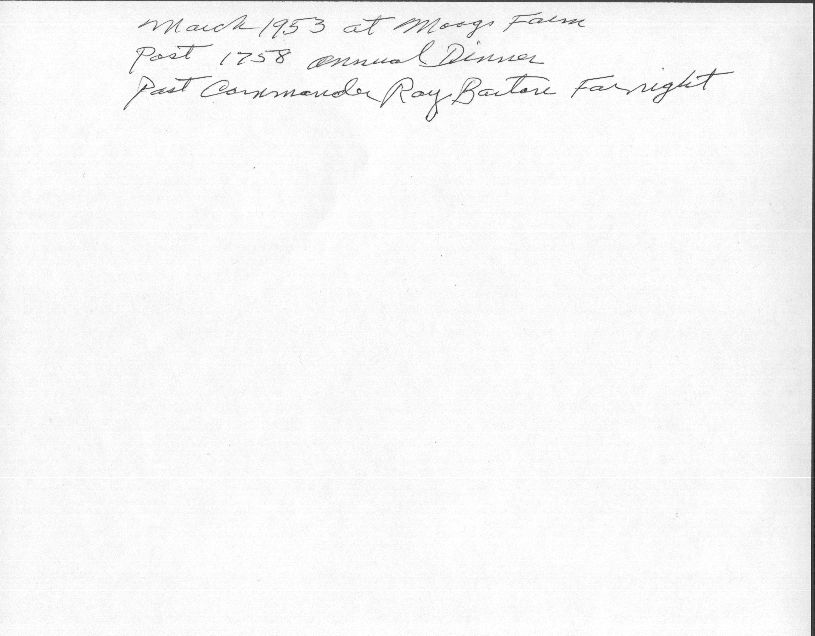 March 1953 at Moogs Farm
Post 1758 annual Dinner
Past Commander Ray Bartore Far right